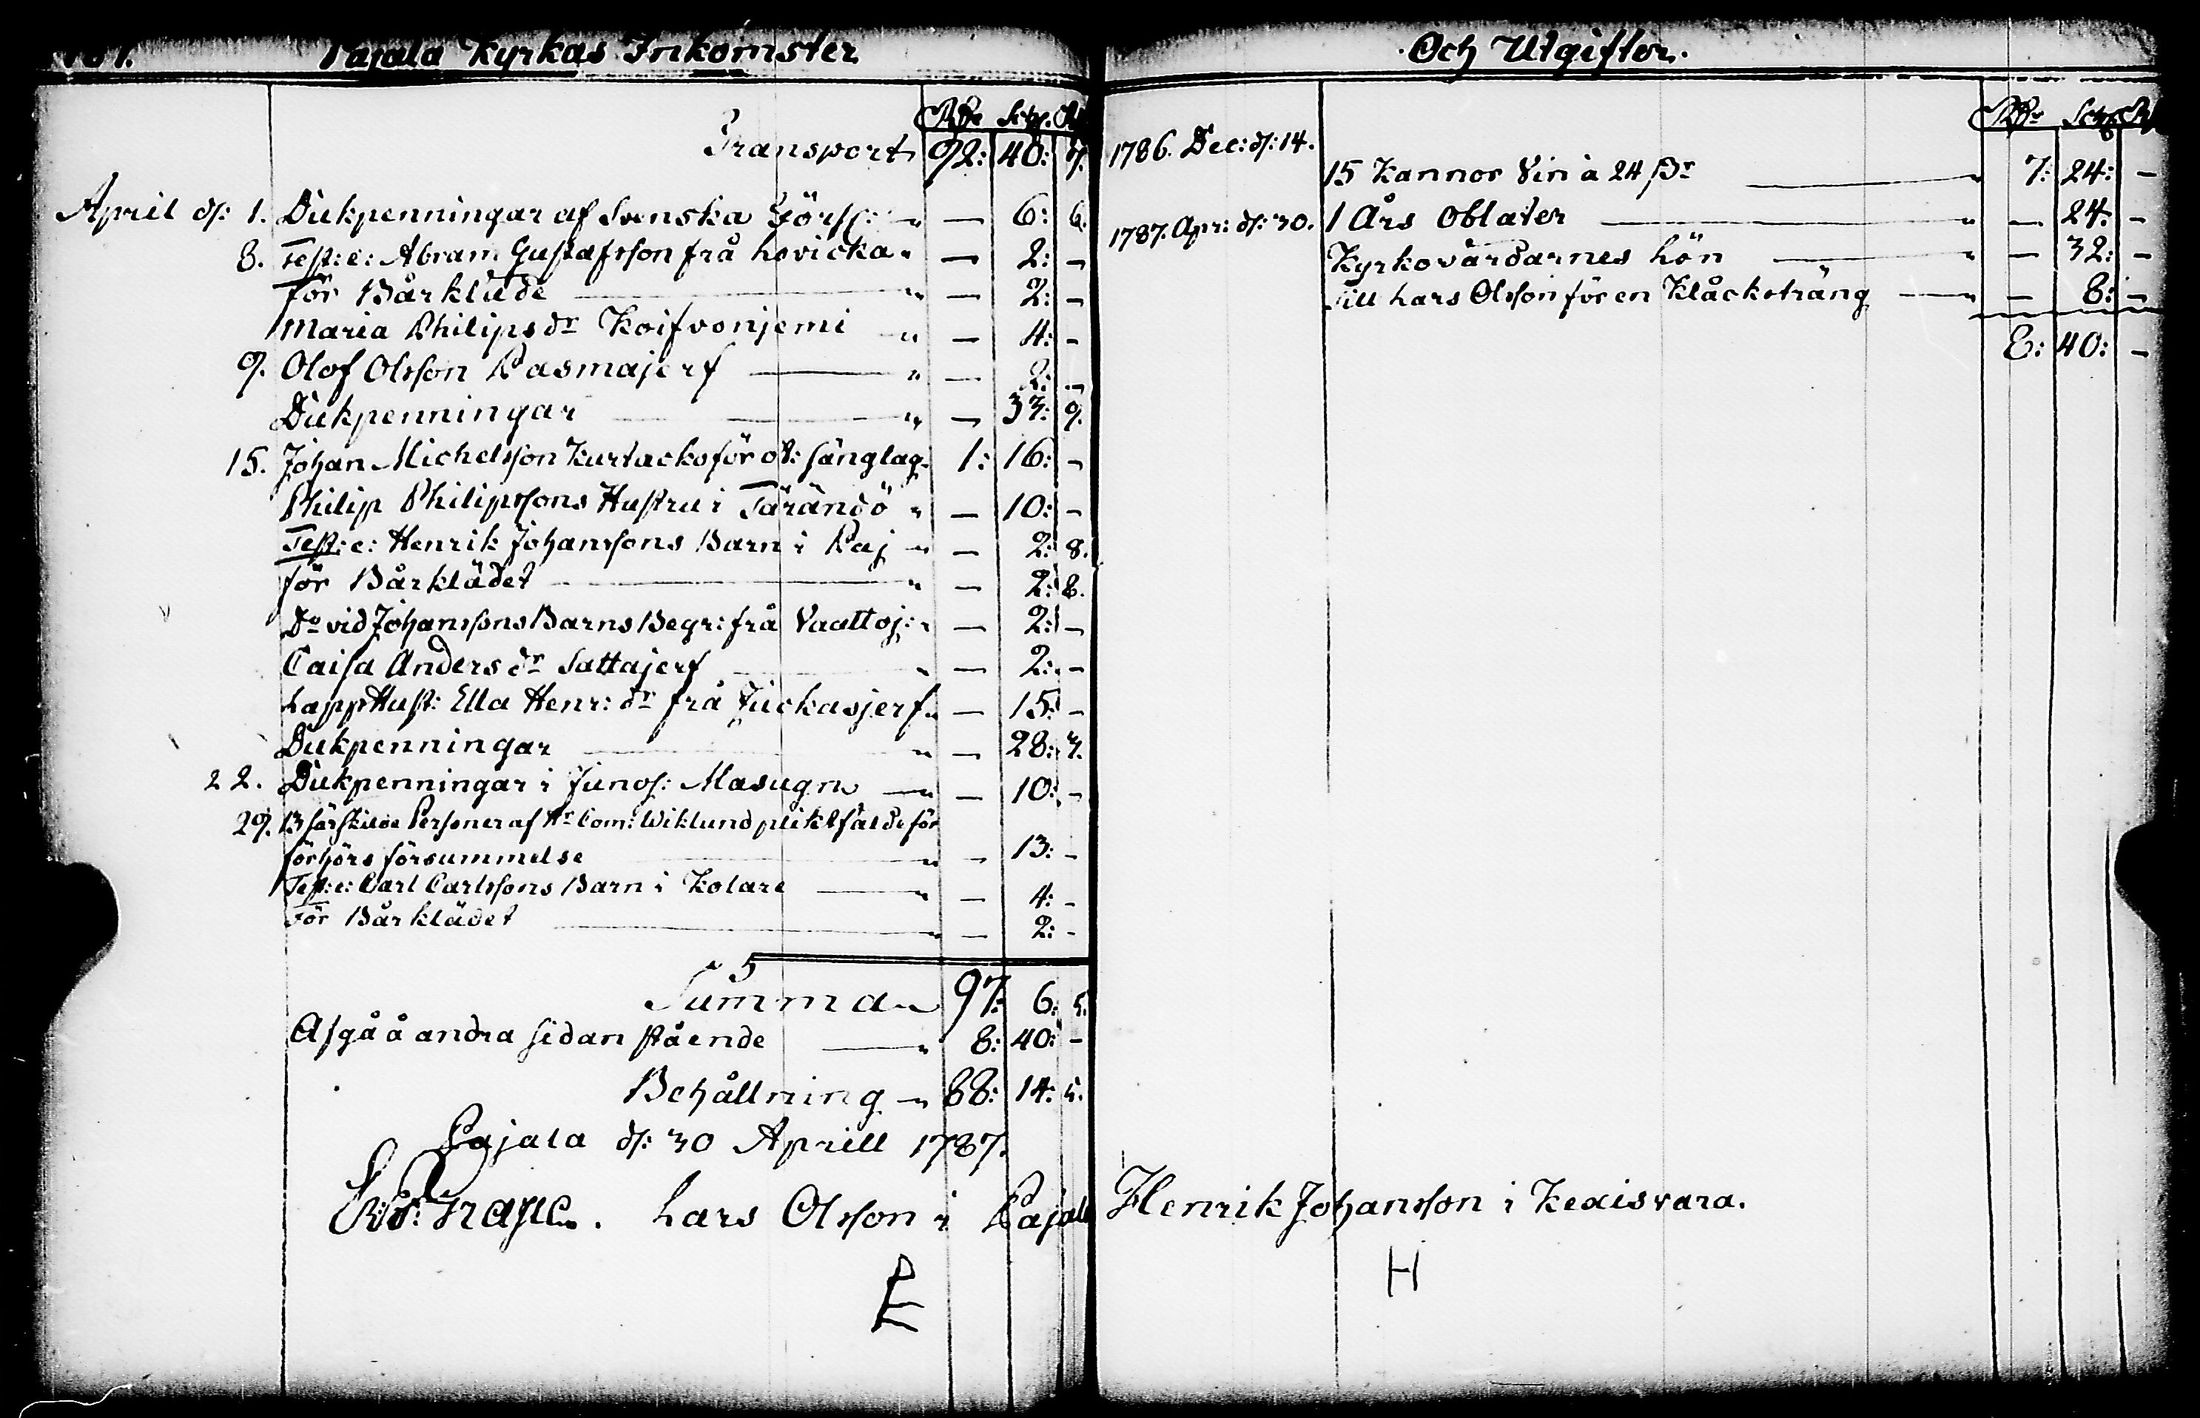 Pajala Kyrkas Inkomster
RDr Sch. R
Transport 92: 40: 7.
April d: 1. Dukpenningar af Svenska Förs: „ — 6: 6.
8. Test: e: Abram Gustafsson frå Lovicka „ — 2: —
för Bårkläde „ — 2: —
Maria Philipsdr Koifvonjemi „ — 4: —
9. Olof Olsson Pasmajerf „ — 2: —
Dukpenningar „ — 33: 9.
15. Johan Michelsson Kurtacko för ot: sänglag „ 1: 16: —
Philip Philipssons Hustru i Tärändö „ — 10: —
Test: e: Henrik Johanssons Barn i Paj „ — 2: 8.
för Bårklädet „ — 2: 8.
Do vid Johanssons Barns Begr: frå Vaattoj: „ — 2: —
Caisa Andersdr Sattajerf „ — 2: —
LappHust: Ella Henr: dr frå Juckasjerf „ — 15: —
Dukpenningar „ — 28: 3.
22. Dukpenningar i Junos: Masugn „ — 10: —
29. 13 särskilde Personer af Hr Com: Wiklund pliktfälde för
förhörs försummelse „ — 13: —
Test: e: Carl Carlssons Barn i Kolare „ — 4: —
För Bårklädet „ — 2: —
Summa „ 97: 6: 5.
Afgå å andra sidan stående „ 8: 40: —
Behållning „ 88: 14: 5.
Pajala d: 30 Aprill 1787.
Lars Olsson i Pajala
Och Utgifter.
RDr Sch R
1786. Dec: d: 14.
15 Kannor Vin à 24 ßr „ 7: 24: —
1787. Apr: d: 30. 1 Års Oblater „ — 24: —
Kyrkovärdarnes lön „ — 32: —
Till Lars Olsson för en Klåcksträng „ — 8: —
8: 40: —
Henrik Johansson i Kexisvara.
H